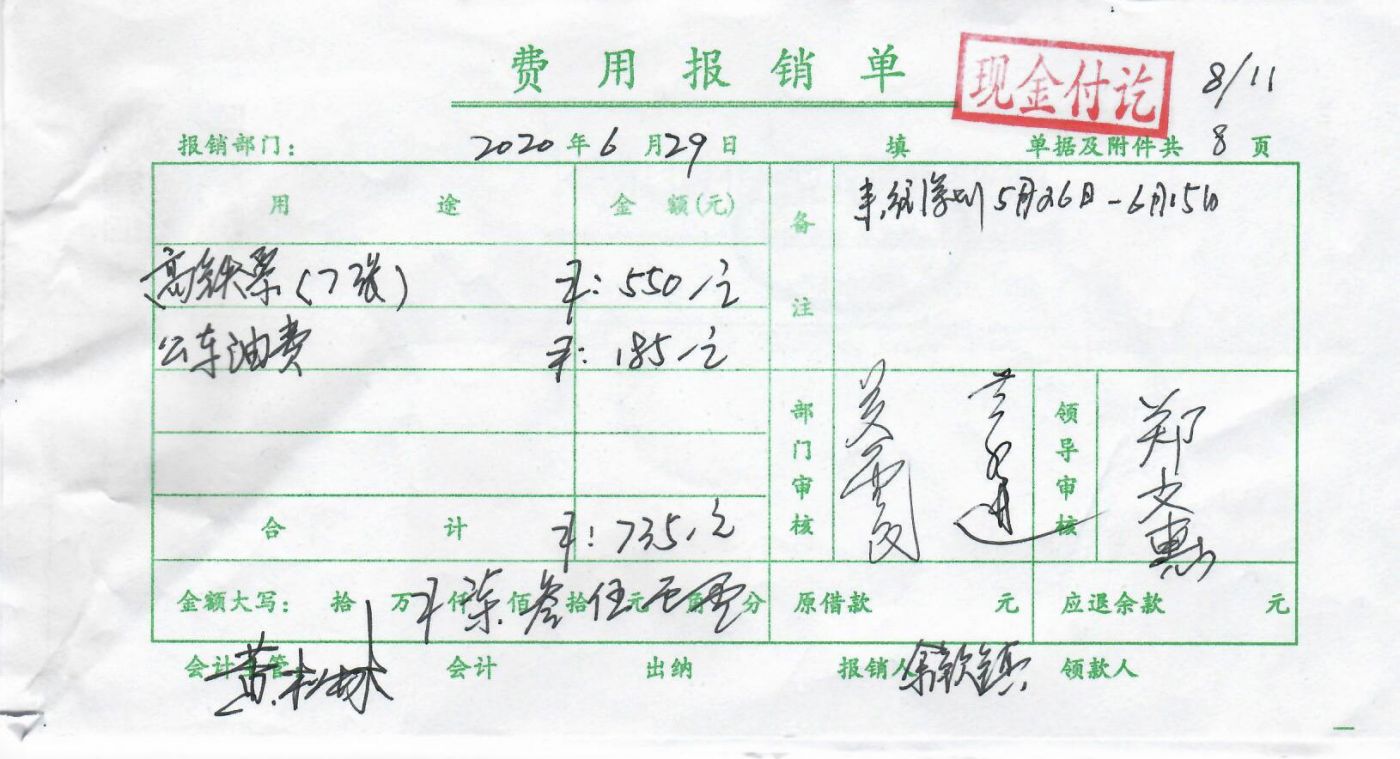 费用报销单 现金付讫 8/11
报销部门: 2020年6月29日 填 单据及附件共 8 页
用途 金额(元) 备注 5月26日-6月15日
高铁票(7张) ¥:550元
公车油费 ¥:185元
部门审核 领导审核 郑文惠
合计 ¥:735元
金额大写: 拾万仟佰拾元角分 ¥柒叁伍元 原借款 元 应退余款 元
会计主管: 黄松林 会计 出纳 报销人 领款人